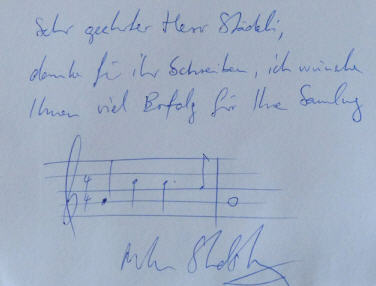 Sehr geehrter Herr Städeli,
danke für ihr Schreiben, ich wünsche
Ihnen viel Erfolg für Ihre Samlug
4
4